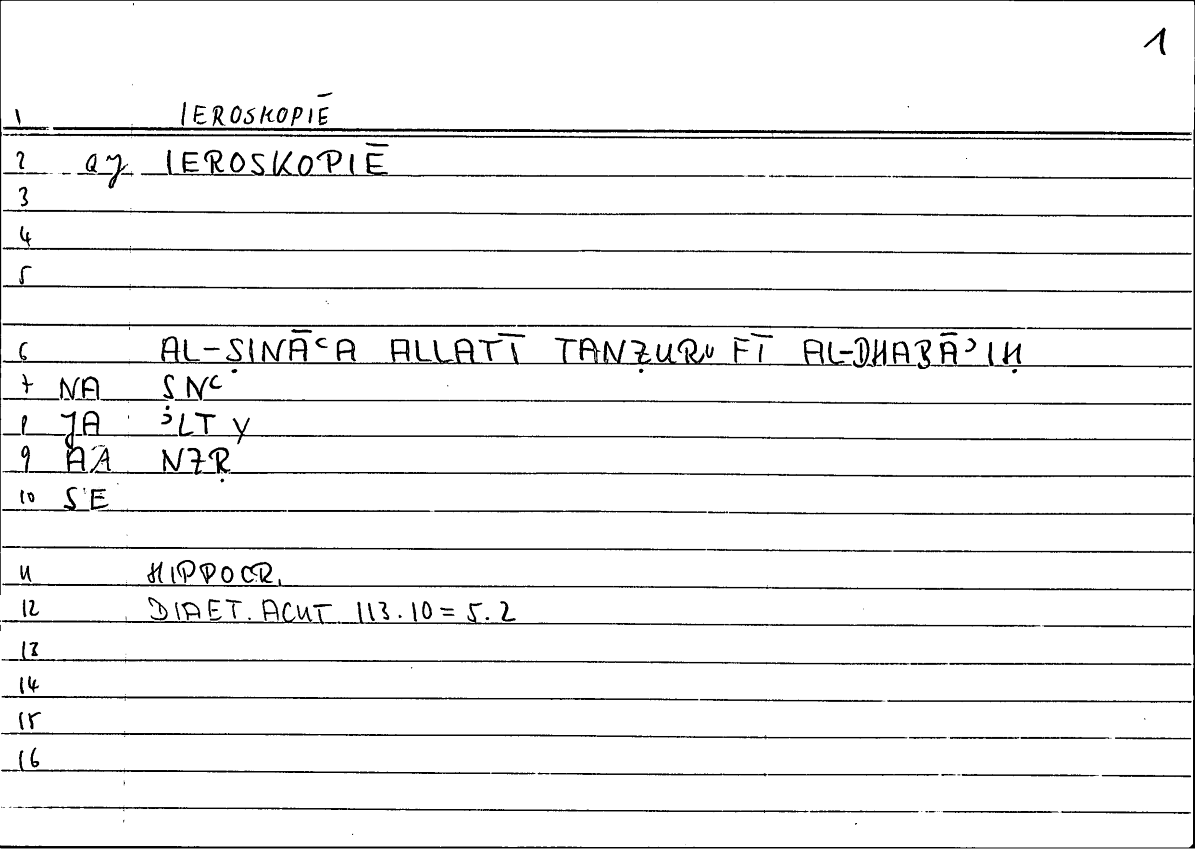 1
1 IEROSKOPIĒ
2 qy IEROSKOPIĒ
3
4
5
6 AL-ṢINĀʿA ALLATĪ TANẒURU FĪ AL-DHABĀʾIḤ
7 NA ṢNʿ
8 JA ʾLTY
9 AA NẒR
10 SE
11 HIPPOCR.
12 DIAET. ACUT 113.10 = 5.2
13
14
15
16